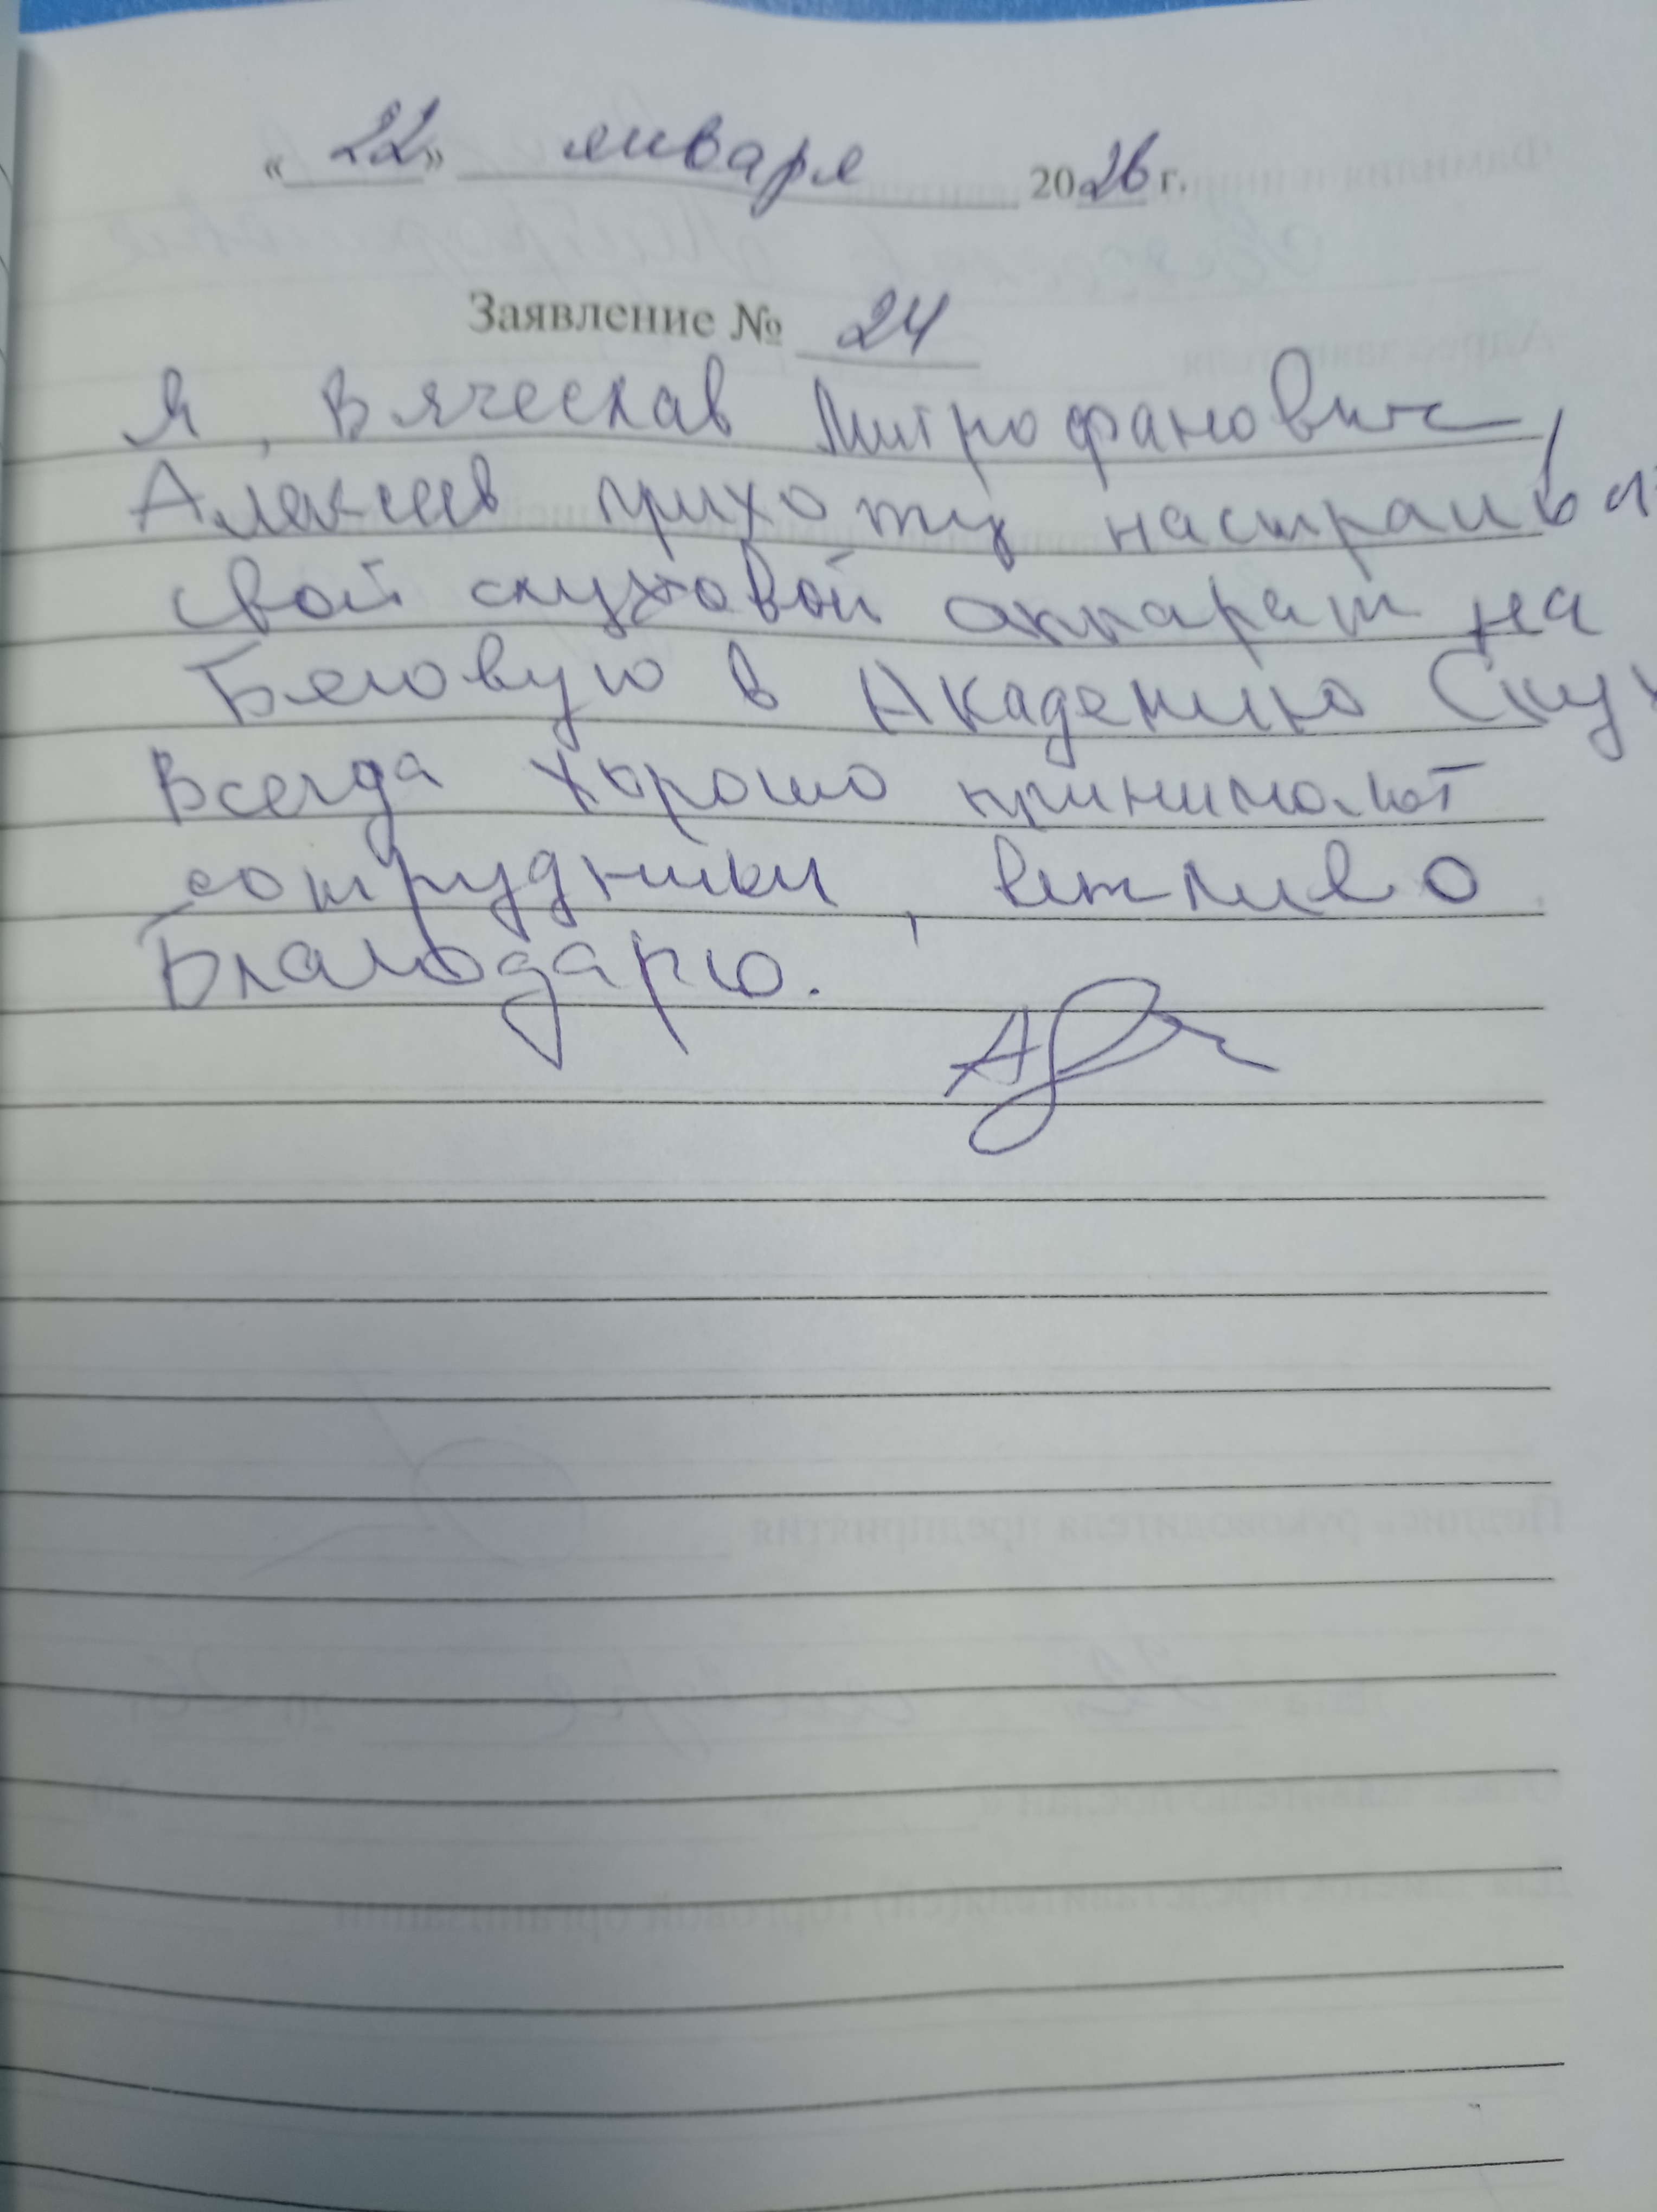 «22» января 2026 г.
Заявление № 24
Я, Вячеслав Митрофанович
Алексеев прихожу настраива
свой слуховой аппарат на
Беговую в Академию Слух
Всегда хорошо принимают
сотрудники, вежливо
Благодарю.